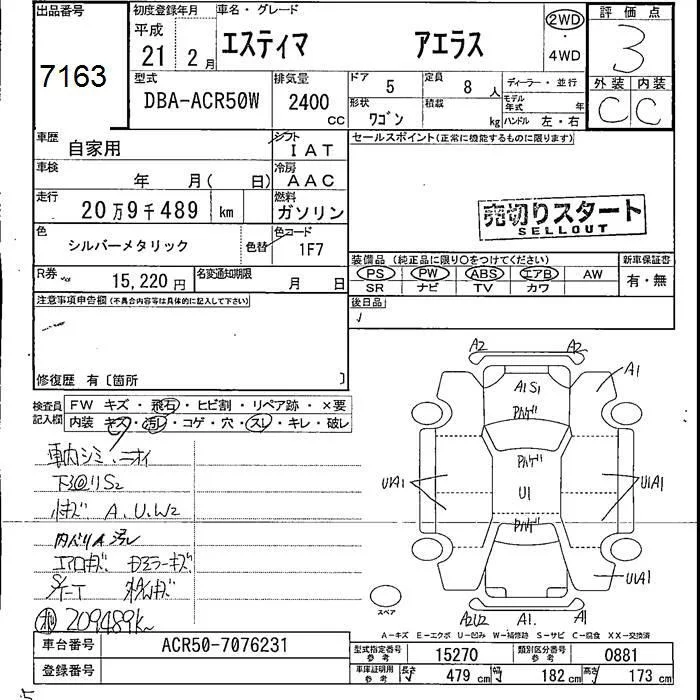 出品番号
7163
初度登録年月
平成
21 2月
車名・グレード
エスティマ アエラス
2WD
・
4WD
評価点
3
型式
DBA-ACR50W
排気量
2400
CC
ドア
5
定員
8人
ディーラー・並行
形状
ワゴン
積載
kg
モデル年式 年
ハンドル 左・右
外装 内装
C C
車歴
自家用
シフト
IAT
セールスポイント(正常に機能するものに限ります)
車検
年 月( 日)
冷房
AAC
走行
20万9千489 km
燃料
ガソリン
売切りスタート
SELLOUT
色
シルバーメタリック
色替
色コード
1F7
装備品 (純正品に限り〇をつけてください)
新車保証書
PS PW ABS エアB AW
有・無
SR ナビ TV カワ
R券
15,220円
名変通知期限
月 日
後日品
注意事項申告欄(不具合内容等は具体的に記入して下さい)
修復歴 有〔箇所 〕
検査員記入欄
FW キズ・飛石・ヒビ割・リペア跡・×要
内装 キズ・汚レ・コゲ・穴・スレ・キレ・破レ
車内シミ、ニオイ
下回りS2
小キズ A.U.W2
内ハリA汚レ
エアロキズ ドアミラーキズ
209489k
A2 A2
A1
A1 S1
U1A1
U1
U1A1
U1A1
A2U2 A1. A1
スペア
A-キズ E-エクボ U-凹み W-補修跡 S-サビ C-腐食 XX-交換済
車台番号
ACR50-7076231
登録番号
型式指定番号参考
15270
類別区分番号参考
0881
車庫証明用参考
長さ 479 cm 幅 182 cm 高さ 173 cm